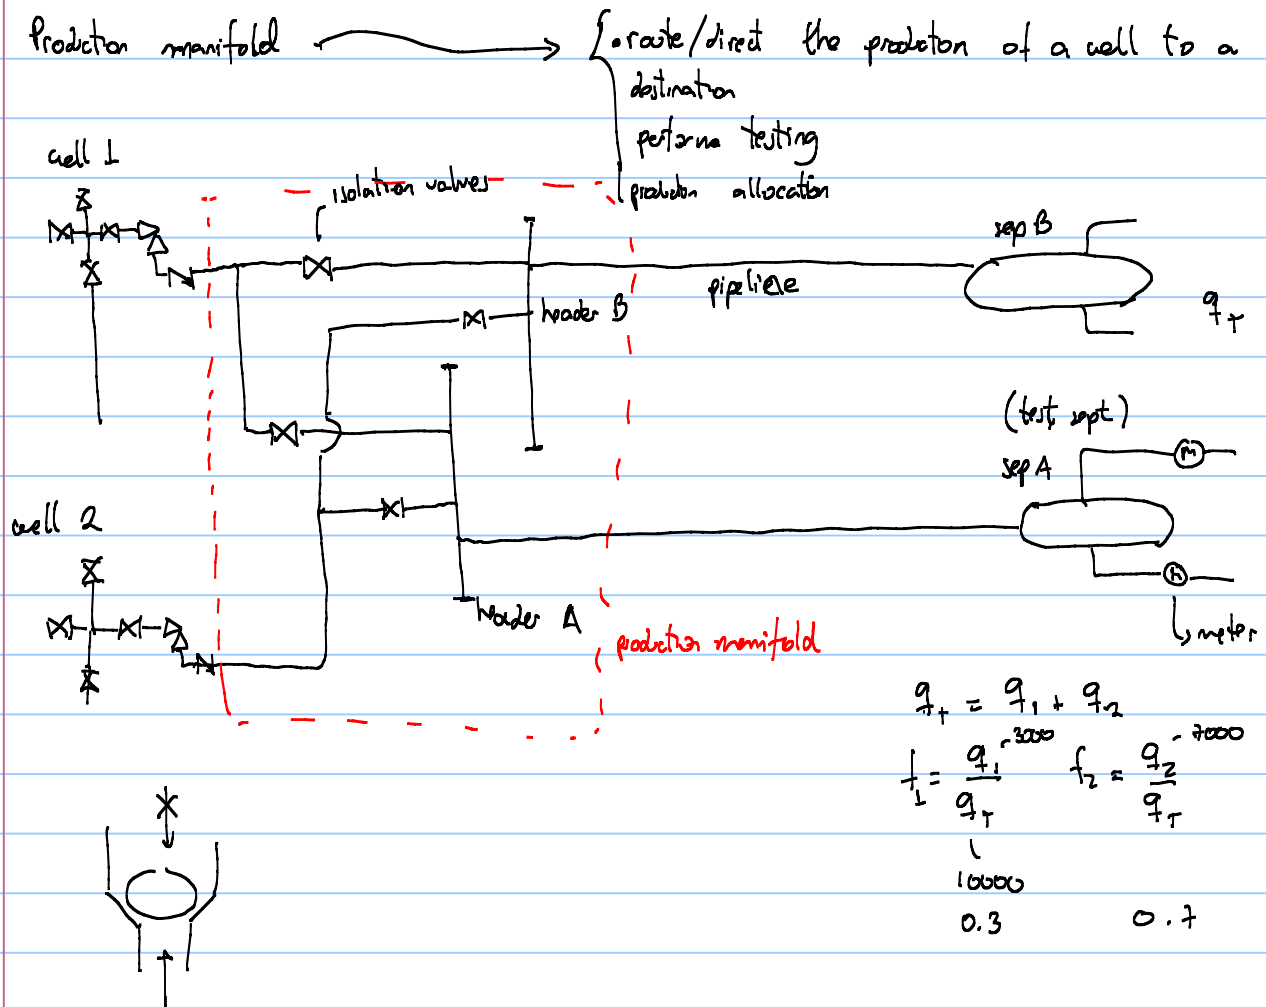 Production manifold
• route/direct the production of a well to a
destination
perform testing
production allocation
well 1
isolation valves
sep B
pipeline
header B
q_T
(test sept)
sep A
M
well 2
M
header A
meter
production manifold
q_T = q_1 + q_2
f_1 = q_1 / q_T
3000
f_2 = q_2 / q_T
7000
10000
0.3
0.7